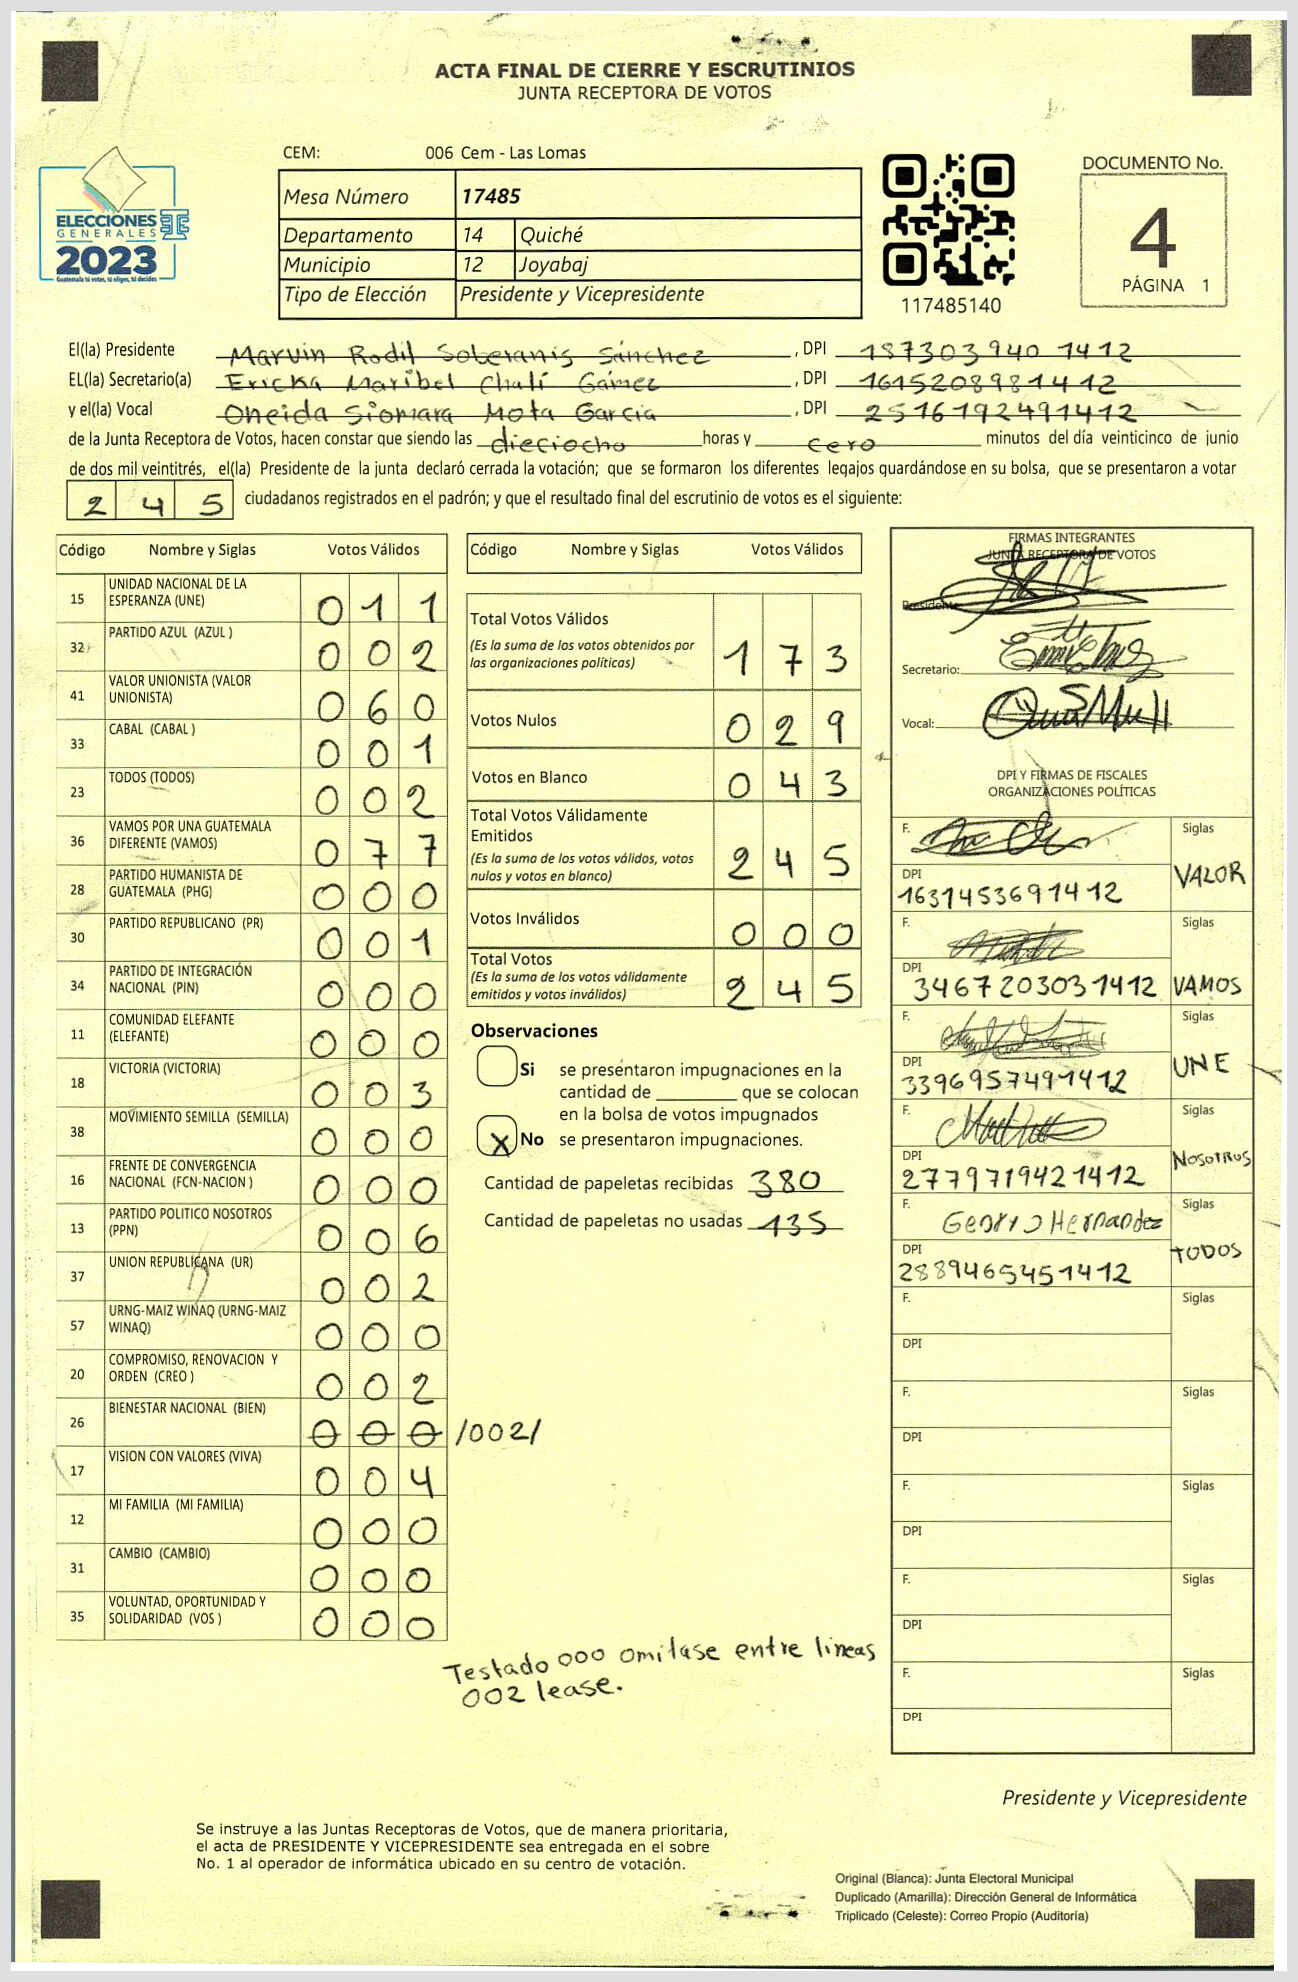 ACTA FINAL DE CIERRE Y ESCRUTINIOS
JUNTA RECEPTORA DE VOTOS
CEM: 006 Cem - Las Lomas
ELECCIONES
GENERALES
2023
Guatemala tú votas, tú eliges, tú decides
Mesa Número 17485
Departamento 14 Quiché
Municipio 12 Joyabaj
Tipo de Elección Presidente y Vicepresidente
117485140
DOCUMENTO No.
4
PÁGINA 1
El(la) Presidente Marvin Rodil Soberanis Sánchez , DPI 187303940 1412
EL(la) Secretario(a) Ericka Maribel Chalí Gámez , DPI 1615208981412
y el(la) Vocal Oneida Siomara Mota García , DPI 2516192491412
de la Junta Receptora de Votos, hacen constar que siendo las dieciocho horas y cero minutos del día veinticinco de junio
de dos mil veintitrés, el(la) Presidente de la junta declaró cerrada la votación; que se formaron los diferentes legajos guardándose en su bolsa, que se presentaron a votar
2 4 5 ciudadanos registrados en el padrón; y que el resultado final del escrutinio de votos es el siguiente:
Código Nombre y Siglas Votos Válidos
15 UNIDAD NACIONAL DE LA ESPERANZA (UNE) 0 1 1
32 PARTIDO AZUL (AZUL ) 0 0 2
41 VALOR UNIONISTA (VALOR UNIONISTA) 0 6 0
33 CABAL (CABAL ) 0 0 1
23 TODOS (TODOS) 0 0 2
36 VAMOS POR UNA GUATEMALA DIFERENTE (VAMOS) 0 7 7
28 PARTIDO HUMANISTA DE GUATEMALA (PHG) 0 0 0
30 PARTIDO REPUBLICANO (PR) 0 0 1
34 PARTIDO DE INTEGRACIÓN NACIONAL (PIN) 0 0 0
11 COMUNIDAD ELEFANTE (ELEFANTE) 0 0 0
18 VICTORIA (VICTORIA) 0 0 3
38 MOVIMIENTO SEMILLA (SEMILLA) 0 0 0
16 FRENTE DE CONVERGENCIA NACIONAL (FCN-NACION ) 0 0 0
13 PARTIDO POLITICO NOSOTROS (PPN) 0 0 6
37 UNION REPUBLICANA (UR) 0 0 2
57 URNG-MAIZ WINAQ (URNG-MAIZ WINAQ) 0 0 0
20 COMPROMISO, RENOVACION Y ORDEN (CREO ) 0 0 2
26 BIENESTAR NACIONAL (BIEN) 0 0 0 /002/
17 VISION CON VALORES (VIVA) 0 0 4
12 MI FAMILIA (MI FAMILIA) 0 0 0
31 CAMBIO (CAMBIO) 0 0 0
35 VOLUNTAD, OPORTUNIDAD Y SOLIDARIDAD (VOS ) 0 0 0
Código Nombre y Siglas Votos Válidos
Total Votos Válidos
(Es la suma de los votos obtenidos por
las organizaciones políticas) 1 7 3
Votos Nulos 0 2 9
Votos en Blanco 0 4 3
Total Votos Válidamente
Emitidos
(Es la suma de los votos válidos, votos
nulos y votos en blanco) 2 4 5
Votos Inválidos 0 0 0
Total Votos
(Es la suma de los votos válidamente
emitidos y votos inválidos) 2 4 5
Observaciones
Si se presentaron impugnaciones en la
cantidad de ________ que se colocan
en la bolsa de votos impugnados
X No se presentaron impugnaciones.
Cantidad de papeletas recibidas 380
Cantidad de papeletas no usadas 135
Testado 000 omitase entre lineas
002 lease.
FIRMAS INTEGRANTES
JUNTA RECEPTORA DE VOTOS
Presidente:
Secretario:
Vocal:
DPI Y FIRMAS DE FISCALES
ORGANIZACIONES POLÍTICAS
F. Siglas
DPI 1631453691412 VALOR
F. Siglas
DPI 3467203031412 VAMOS
F. Siglas
DPI 3396957491412 UNE
F. Siglas
DPI 2779719421412 NOSOTROS
F. Hernandez Siglas
DPI 2889465451412 TODOS
F. Siglas
DPI
F. Siglas
DPI
F. Siglas
DPI
F. Siglas
DPI
F. Siglas
DPI
Presidente y Vicepresidente
Se instruye a las Juntas Receptoras de Votos, que de manera prioritaria,
el acta de PRESIDENTE Y VICEPRESIDENTE sea entregada en el sobre
No. 1 al operador de informática ubicado en su centro de votación.
Original (Blanca): Junta Electoral Municipal
Duplicado (Amarilla): Dirección General de Informática
Triplicado (Celeste): Correo Propio (Auditoría)